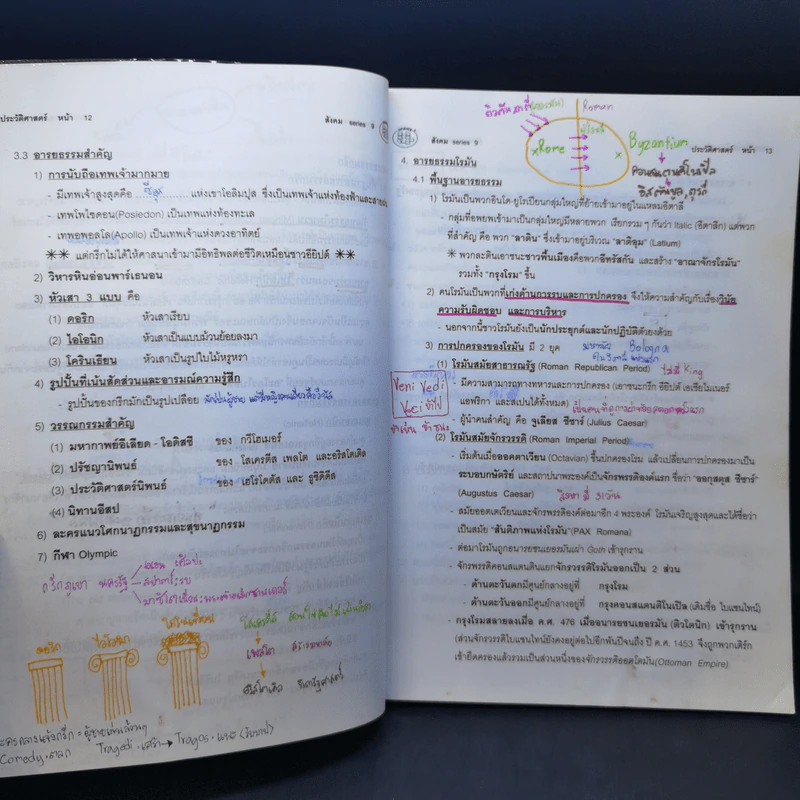 ประวัติศาสตร์ หน้า 12
สังคม series 9
3.3 อารยธรรมสำคัญ
1) การนับถือเทพเจ้ามากมาย
- มีเทพเจ้าสูงสุดคือ ซีอุส แห่งเขาโอลิมปุส ซึ่งเป็นเทพเจ้าแห่งท้องฟ้าและ
- เทพโพไซดอน(Posiedon) เป็นเทพแห่งท้องทะเล
- เทพอพอลโล(Apollo) เป็นเทพเจ้าแห่งดวงอาทิตย์
** แต่กรีกไม่ได้ให้ศาสนาเข้ามามีอิทธิพลต่อชีวิตเหมือนชาวอียิปต์ **
2) วิหารหินอ่อนพาร์เธนอน
3) หัวเสา 3 แบบ คือ
(1) ดอริก หัวเสาเรียบ
(2) ไอโอนิก หัวเสาเป็นแบบม้วนย้อยลงมา
(3) โครินเธียน หัวเสาเป็นรูปใบไม้หรูหรา
4) รูปปั้นที่เน้นสัดส่วนและอารมณ์ความรู้สึก
- รูปปั้นของกรีกมักเป็นรูปเปลือย
5) วรรณกรรมสำคัญ
(1) มหากาพย์อีเลียด - โอดิสซี ของ กวีโฮเมอร์
(2) ปรัชญานิพนธ์ ของ โสเครตีส เพลโต และอริสโตเติล
(3) ประวัติศาสตร์นิพนธ์ ของ เฮโรโดตัส และ ธูซิดิดีส
(4) นิทานอีสป
6) ละครแนวโศกนาฏกรรมและสุขนาฏกรรม
7) กีฬา Olympic
กรีกภูเขา นครรัฐ
สปาตาร์:รบ
ดอริก ไอโอนิก โครินเธียน
โสเครตีส
เพลโต
อริสโตเติล รัฐศาสตร์
Comedy · ตลก Tragedi · เศร้า → Tragos · แพะ
สังคม series 9
ประวัติศาสตร์ หน้า 13
Roman
×Rome ×
Byzantium
คอนสแตนติโนเปิล
อิสตันบูล, ตุรกี
4. อารยธรรมโรมัน
4.1 พื้นฐานอารยธรรม
1) โรมันเป็นพวกอินโด-ยูโรเปียนกลุ่มใหญ่ที่ย้ายเข้ามาอยู่ในแหลมอิตาลี
- กลุ่มที่อพยพเข้ามาเป็นกลุ่มใหญ่มีหลายพวก เรียกรวม ๆ กันว่า Italic (อิตาลิก) แต่พวก
ที่สำคัญ คือ พวก "ลาติน" ซึ่งเข้ามาอยู่บริเวณ "ลาติอุม" (Latium)
* พวกละตินเอาชนะชาวพื้นเมืองคือพวกอีทรัสกัน และสร้าง "อาณาจักรโรมัน"
รวมทั้ง "กรุงโรม" ขึ้น
2) คนโรมันเป็นพวกที่เก่งด้านการรบและการปกครอง จึงให้ความสำคัญกับเรื่องวินัย
ความรับผิดชอบ และการบริหาร
- นอกจากนี้ชาวโรมันยังเป็นนักประยุกต์และนักปฏิบัติตัวยงด้วย
3) การปกครองของโรมัน มี 2 ยุค
Bologna
(1) โรมันสมัยสาธารณรัฐ (Roman Republican Period) ไม่มี King
Veni Vedi
Veci
- มีความสามารถทางทหารและการปกครอง (เอาชนะกรีก อียิปต์ เอเชียไมเนอร์
แอฟริกา และสเปนได้ทั้งหมด)
- ผู้นำคนสำคัญ คือ จูเลียส ซีซาร์ (Julius Caesar)
(2) โรมันสมัยจักรวรรดิ (Roman Imperial Period)
- เริ่มต้นเมื่อออคตาเวียน (Octavian) ขึ้นปกครองโรม แล้วเปลี่ยนการปกครองมาเป็น
ระบอบกษัตริย์ และสถาปนาพระองค์เป็นจักรพรรดิองค์แรก ชื่อว่า "ออกุสตุส ซีซาร์"
(Augustus Caesar) สิงหา มี 31 วัน
- สมัยออคเตเวียนและจักรพรรดิองค์ต่อมาอีก 4 พระองค์ โรมันเจริญสูงสุดและได้ชื่อว่า
เป็นสมัย "สันติภาพแห่งโรมัน" (PAX Romana)
- ต่อมาโรมันถูกอนารยชนเยอรมันเผ่า Goth เข้ารุกราน
- จักรพรรดิคอนสแตนตินแยกจักรวรรดิโรมันออกเป็น 2 ส่วน
- ด้านตะวันตกมีศูนย์กลางอยู่ที่ กรุงโรม
- ด้านตะวันออกมีศูนย์กลางอยู่ที่ กรุงคอนสแตนติโนเปิล (เดิมชื่อ ไบแซนไทน์)
- กรุงโรมสลายลงเมื่อ ค.ศ. 476 เมื่ออนารยชนเยอรมัน (ติวโตนิก) เข้ารุกราน
(ส่วนจักรวรรดิไบแซนไทน์ยังคงอยู่ต่อไปอีกพันปีจนถึง ปี ค.ศ. 1453 จึงถูกพวกเติร์ก
เข้ายึดครองแล้วรวมเป็นส่วนหนึ่งของจักรวรรดิออตโตมัน(Ottoman Empire)